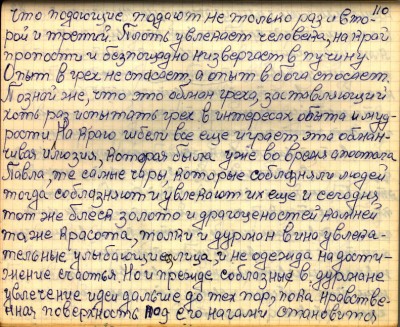 110
Что подающие падают не только раз и вто-
рой и третий. Плоть увлекает человека, на край
пропости и безпощадно низвергает в пучину
Опыт в грех не спасает, а опыт в бога спасает.
Познай же, что это обман греха, заставляющий
хоть раз испытать грех в интересах опыта и муд-
рости. На краю гибели все еще играет эта обман-
чивая илюзия, которая была уже во время апостола
Павла, те самые чары, которые соблазняли людей
тогда соблазняют и увлекают их еще и сегодня,
тот же блеск золото и драгоценостей камней
та же красота, толки и дурман вина увлека-
тельные улыбающие лица, и не одежда на дости-
жение счастья. Но и прежде соблазны в дурмане
увлечение идеи дальше до тех пор, пока нравстве-
нная поверхность под его ногами становится